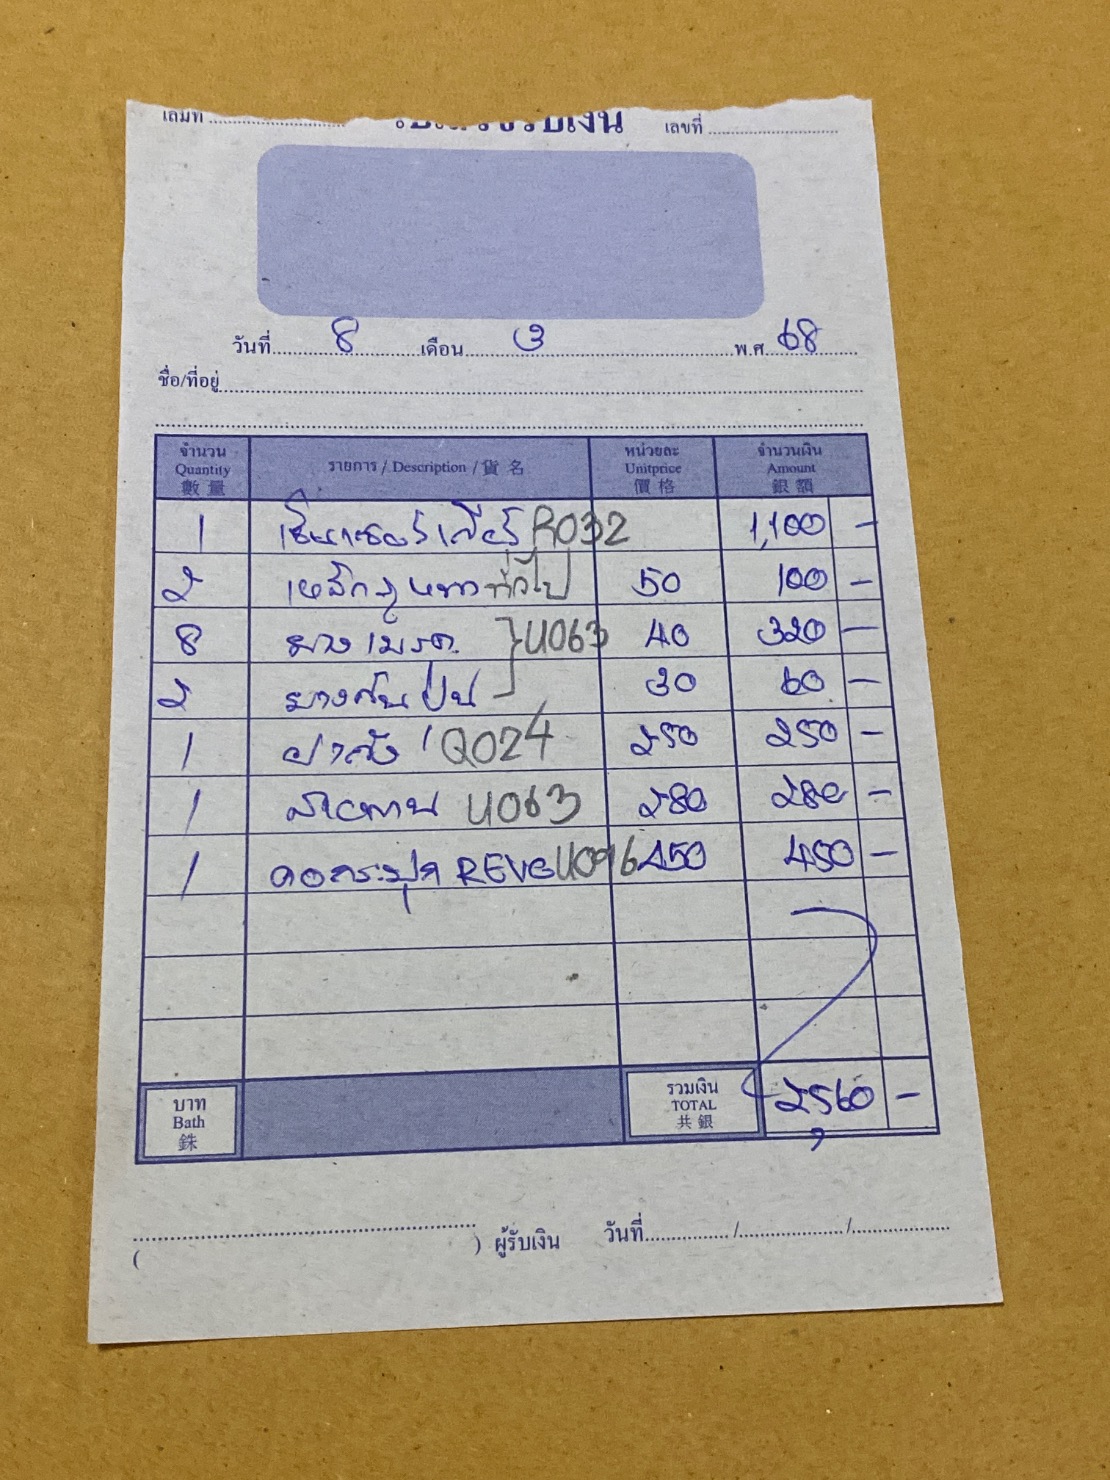 เล่มที่ ใบเสร็จรับเงิน เลขที่
วันที่ 8 เดือน 3 พ.ศ. 68
ชื่อ/ที่อยู่
จำนวน รายการ / Description / 貨 名 หน่วยละ จำนวนเงิน
Quantity Unitprice Amount
數 量 價 格 銀 額
1 เซ็นเซอร์เกียร์ R032 1,100 -
2 เหล็ก หนวด ทั่วไป 50 100 -
8 ยางเบรค. U063 40 320 -
2 ยางกันฝุ่น 30 60 -
1 ฝาถัง Q024 250 250 -
1 สายพาน U063 280 280 -
1 คอกระปุก REVO U096 450 450 -
บาท รวมเงิน 2,560 -
Bath TOTAL
銖 共 銀
( ) ผู้รับเงิน วันที่ / /